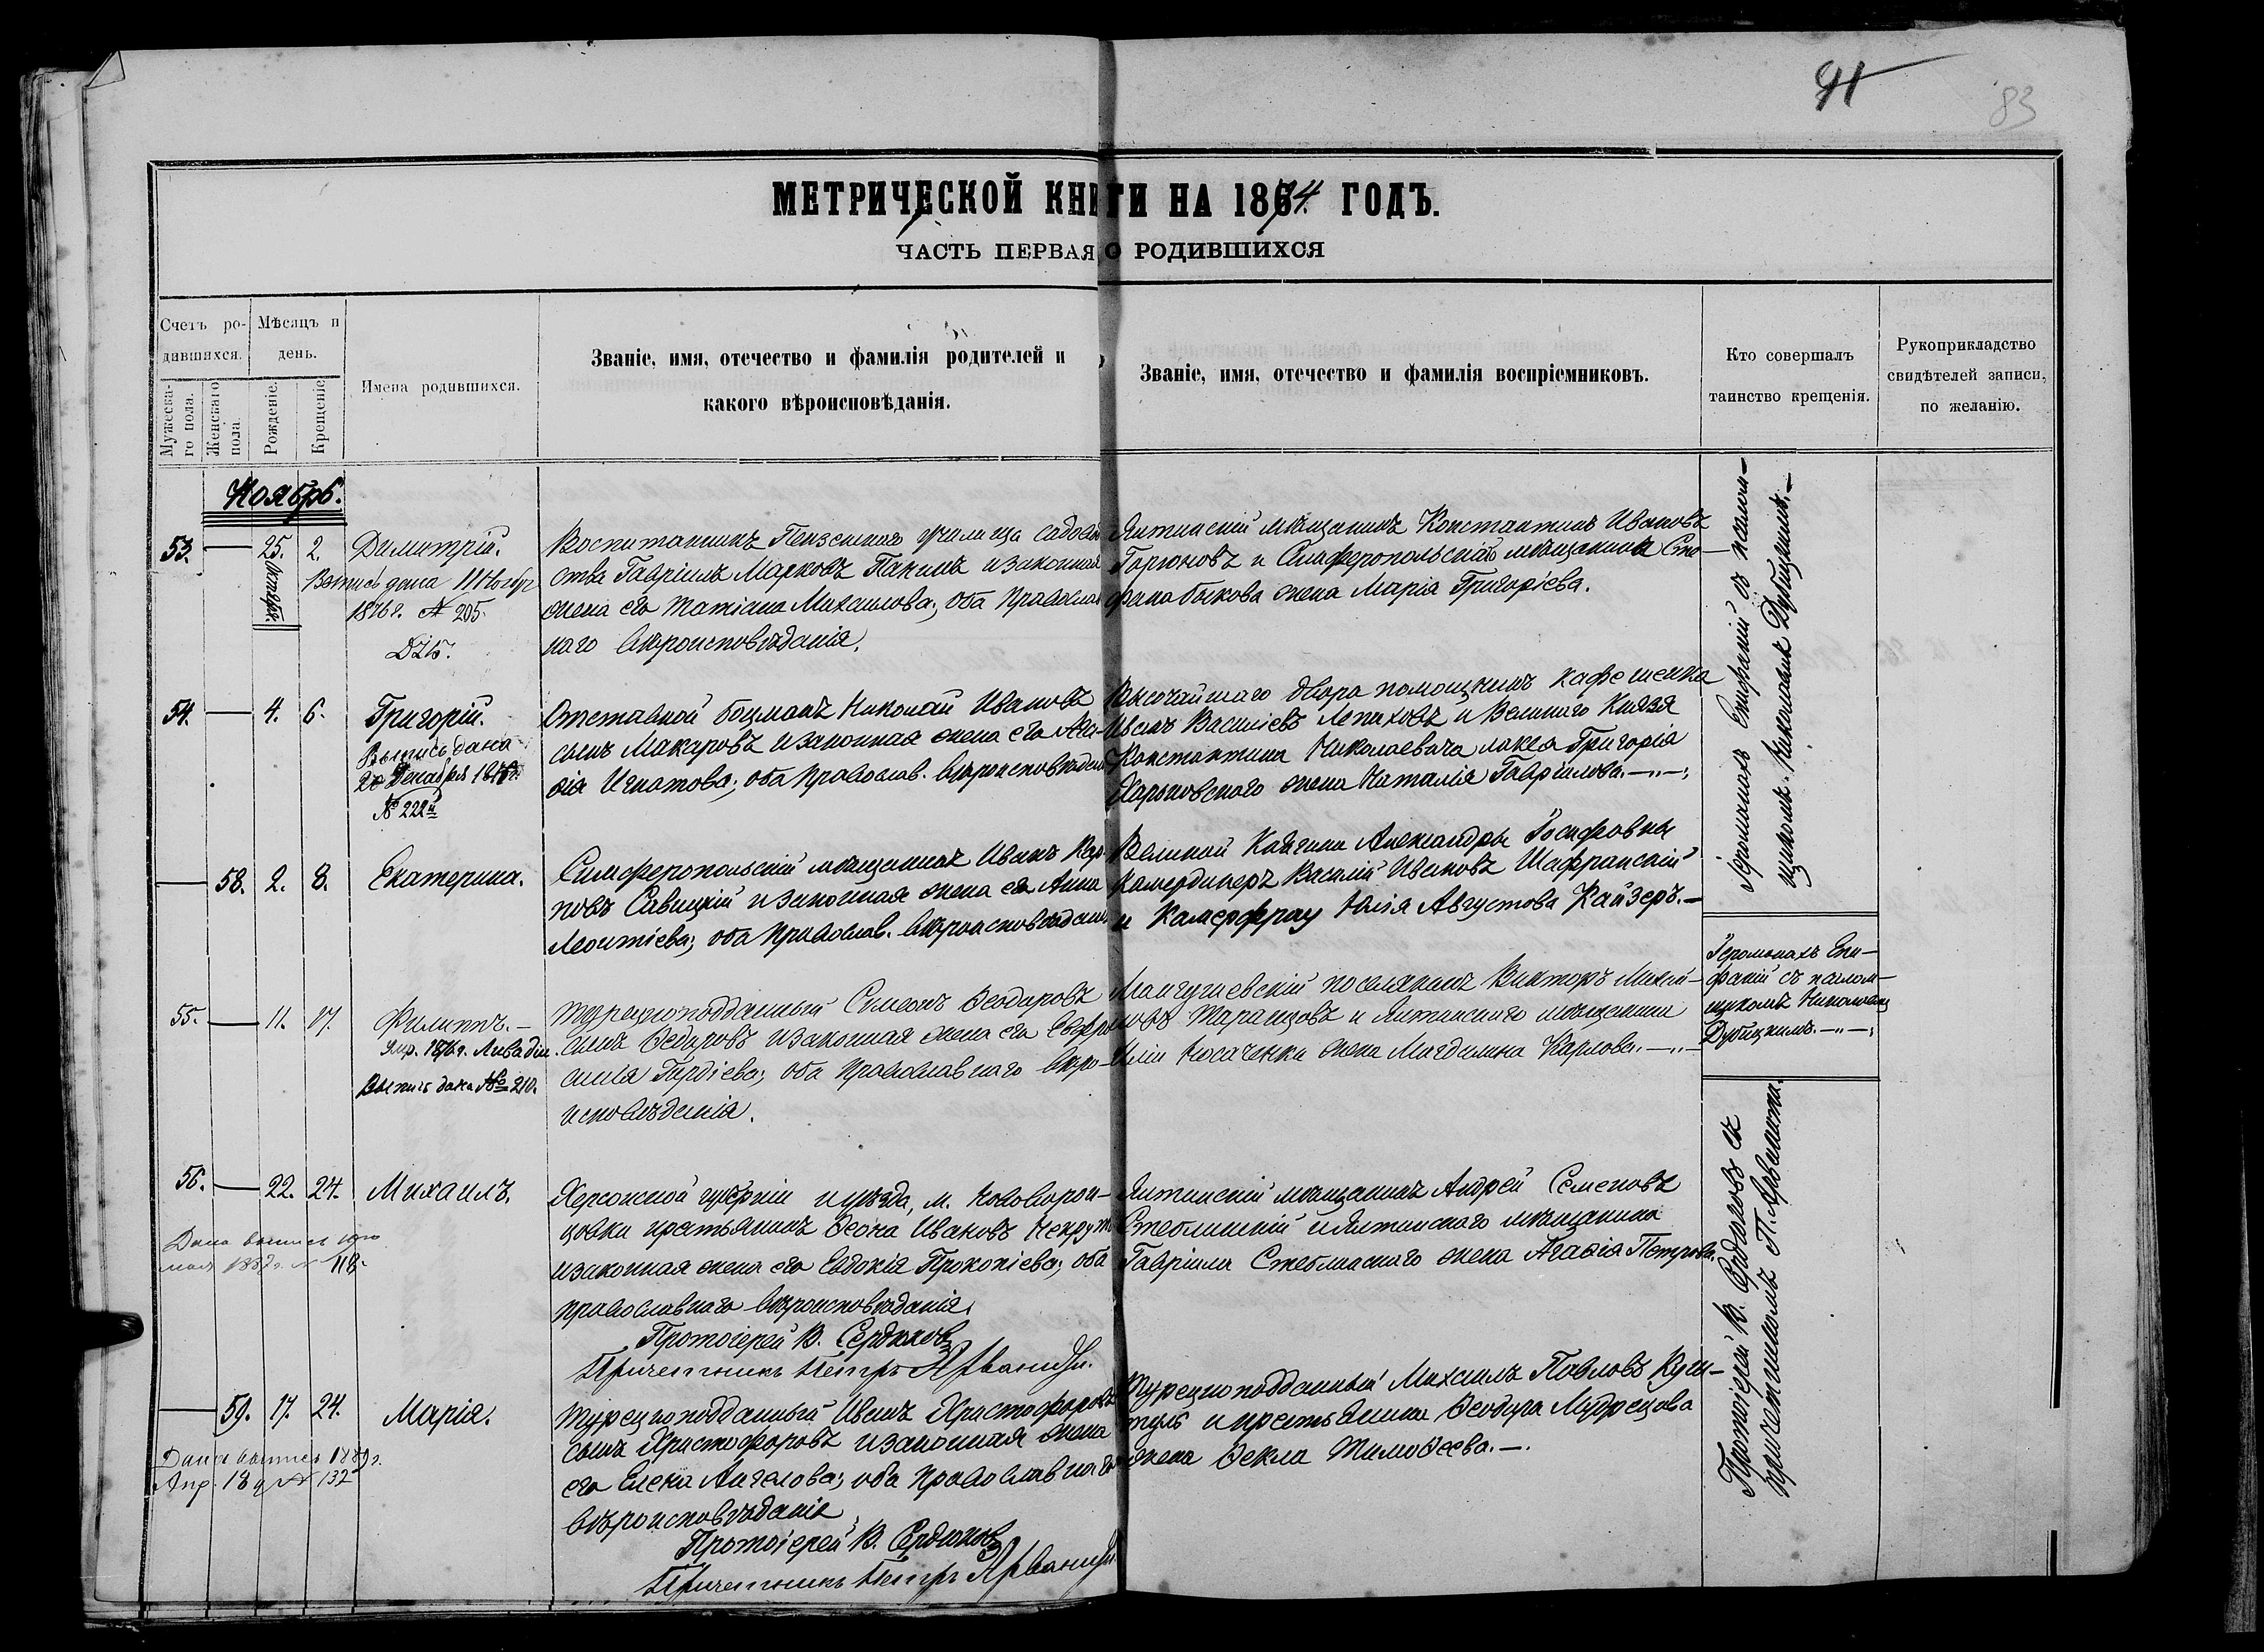 91
83
МЕТРИЧЕСКОЙ КНИГИ НА 1874 ГОДЪ.
ЧАСТЬ ПЕРВАЯ О РОДИВШИХСЯ
Счетъ ро-
дившихся.
Мѣсяцъ и
день.
Мужеска-
го пола.
Женскаго
пола.
Рожденіе.
Крещеніе.
Имена родившихся.
Званіе, имя, отечество и фамилія родителей и
какого вѣроисповѣданія.
Званіе, имя, отечество и фамилія воспріемниковъ.
Кто совершалъ
таинство крещенія.
Рукоприкладство
свидѣтелей записи,
по желанію.
Ноябрь.
53. — 25. 2. Димитрій.
Октября.
Выпись дана 11 Ноября
1876 г. № 205.
Воспитанникъ Пензенскаго училища садовод
ства Гавріилъ Марковъ Панинъ и законная
жена его Татіана Михаилова; оба Православ
наго вѣроисповѣданія.
Ялтинскій мѣщанинъ Константинъ Ивановъ
Горюновъ и Симферопольскаго мѣщанина Сте-
фана Быкова жена Марія Григоріева.
54. — 4. 6. Григорій.
Выпись дана
20 Декабря
№ 222й
Отставной боцманъ Николай Ивановъ
сынъ Макаровъ и законная жена его
Игнатова; оба Православ. вѣроисповѣданія
Высочайшаго двора помощникъ кафешенка
Иванъ Василіевъ Лепиховъ и Великаго Князя
Константина Николаевича лакея Григорія
Харьковскаго жена Наталія Гавріилова. —„—
— 58. 2. 8. Екатерина.
Симферопольскій мѣщанинъ Иванъ Кар-
повъ Савицкій и законная жена его Анна
Леонтіева; оба Православ. вѣроисповѣданія
Великой Княгини Александры Іосифовны
Камердинеръ Василій Ивановъ Шафранскій
и Камерфрау Юлія Августова Кайзеръ. —
Іеромонахъ Епифаній съ псалом-
щикомъ Николаемъ Дубицкимъ. —
55. — 11. 17. Филиппъ. —
1876 г. Ливадіи
Выпись дана № 210.
Турецкоподданный Симеонъ Ѳеодоровъ
сынъ Ѳедоровъ и законная жена его Евфро
синія Гордіева; оба Православнаго вѣро-
исповѣданія.
Мангушевскій поселянинъ Викторъ Михаи-
ловъ Таранцовъ и Ялтинскаго мѣщанина
Иліи Носаченки жена Магдалина Карлова. —„—
Іеромонахъ Епи-
фаній съ псалом-
щикомъ Николаемъ
Дубицкимъ. —„—
56. — 22. 24. Михаилъ.
Дана выпись
1887 г. № 118.
Херсонской губерніи и уѣзда, м. Нововорон-
цовки крестьянинъ Ѳеона Ивановъ Некрут
и законная жена его Евдокія Прокопіева; оба
православнаго вѣроисповѣданія.
Протоіерей В. Сердюковъ
Причетникъ Петръ Арванити.
Ялтинскій мѣщанинъ Андрей Семеновъ
Стеблинскій и Ялтинскаго мѣщанина
Гавріила Стеблинскаго жена Агаѳія Петрова.
— 59. 17. 24. Марія.
Дана выпись 1889 г.
Апр. 18 д. № 132
Турецкоподданный Иванъ Христофоровъ
сынъ Христофоровъ и законная жена
его Елена Ангелова; оба Православнаго
вѣроисповѣданія.
Протоіерей В. Сердюковъ
Причетникъ Петръ Арванити
Турецкоподданный Михаилъ Павловъ
и крестьянина Ѳеодора Мудрецова
жена Ѳекла Тимоѳеева. —.
Протоіерей В. Сердюковъ съ
причетникомъ П. Арванити.